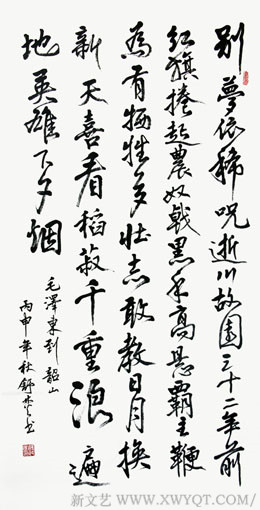 别夢依稀咒逝川故園三十二年前
紅旗捲起農奴戟黑手高懸霸主鞭
為有犧牲多壯志敢教日月換
新天喜看稻菽千重浪遍
地英雄下夕烟
毛澤東到韶山
丙申年秋舒
新文艺 www.XWYQT.COM